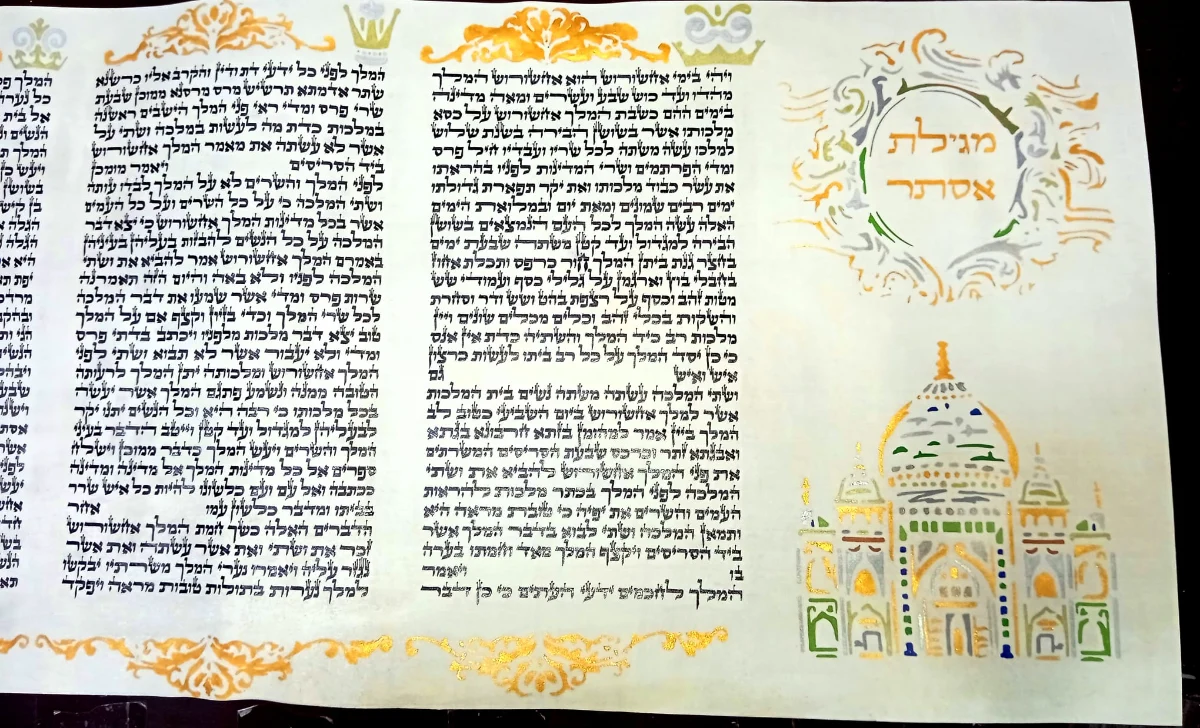 מגילת
אסתר
ויהי בימי אחשורוש הוא אחשורוש המלך
מהדו ועד כוש שבע ועשרים ומאה מדינה
בימים ההם כשבת המלך אחשורוש על כסא
מלכותו אשר בשושן הבירה בשנת שלוש
למלכו עשה משתה לכל שריו ועבדיו חיל פרס
ומדי הפרתמים ושרי המדינות לפניו בהראתו
את עשר כבוד מלכותו ואת יקר תפארת גדולתו
ימים רבים שמונים ומאת יום ובמלואת הימים
האלה עשה המלך לכל העם הנמצאים בשושן
הבירה למגדול ועד קטן משתה שבעת ימים
בחצר גנת ביתן המלך חור כרפס ותכלת אחוז
בחבלי בוץ וארגמן על גלילי כסף ועמודי שש
מטות זהב וכסף על רצפת בהט ושש ודר וסחרת
והשקות בכלי זהב וכלים מכלים שונים ויין
מלכות רב כיד המלך והשתיה כדת אין אנס
כי כן יסד המלך על כל רב ביתו לעשות כרצון
איש ואיש גם
ושתי המלכה עשתה משתה נשים בית המלכות
אשר למלך אחשורוש ביום השביעי כטוב לב
המלך ביין אמר למהומן בזתא חרבונא בגתא
ואבגתא זתר וכרכס שבעת הסריסים המשרתים
את פני המלך אחשורוש להביא את ושתי
המלכה לפני המלך בכתר מלכות להראות
העמים והשרים את יפיה כי טובת מראה היא
ותמאן המלכה ושתי לבוא בדבר המלך אשר
ביד הסריסים ויקצף המלך מאד וחמתו בערה
בו ויאמר
המלך לחכמים ידעי העתים כי כן דבר
המלך לפני כל ידעי דת ודין והקרב אליו כרשנא
שתר אדמתא תרשיש מרס מרסנא ממוכן שבעת
שרי פרס ומדי ראי פני המלך הישבים ראשנה
במלכות כדת מה לעשות במלכה ושתי על
אשר לא עשתה את מאמר המלך אחשורוש
ביד הסריסים ויאמר מומכן
לפני המלך והשרים לא על המלך לבדו עותה
ושתי המלכה כי על כל השרים ועל כל העמים
אשר בכל מדינות המלך אחשורוש כי יצא דבר
המלכה על כל הנשים להבזות בעליהן בעיניהן
באמרם המלך אחשורוש אמר להביא את ושתי
המלכה לפניו ולא באה והיום הזה תאמרנה
שרות פרס ומדי אשר שמעו את דבר המלכה
לכל שרי המלך וכדי בזיון וקצף אם על המלך
טוב יצא דבר מלכות מלפניו ויכתב בדתי פרס
ומדי ולא יעבור אשר לא תבוא ושתי לפני
המלך אחשורוש ומלכותה יתן המלך לרעותה
הטובה ממנה ונשמע פתגם המלך אשר יעשה
בכל מלכותו כי רבה היא וכל הנשים יתנו יקר
לבעליהן למגדול ועד קטן וייטב הדבר בעיני
המלך והשרים ויעש המלך כדבר ממוכן וישלח
ספרים אל כל מדינות המלך אל מדינה ומדינה
ככתבה ואל עם ועם כלשונו להיות כל איש שרר
בביתו ומדבר כלשון עמו אחר
הדברים האלה כשך חמת המלך אחשורוש
זכר את ושתי ואת אשר עשתה ואת אשר
נגזר עליה ויאמרו נערי המלך משרתיו יבקשו
למלך נערות בתולות טובות מראה ויפקד
המלך
כל נערה
אל בית
הנשים
המלך
ויעש כן
בשושן
בן קיש
הגלה
הגלה
היא
יפת
מרדכי
ובהקבץ
הגי
הנשים
ויבהל
שבע
וישנה
אסתר
אשר
לפני
יעשה
אחשורוש
חדשים